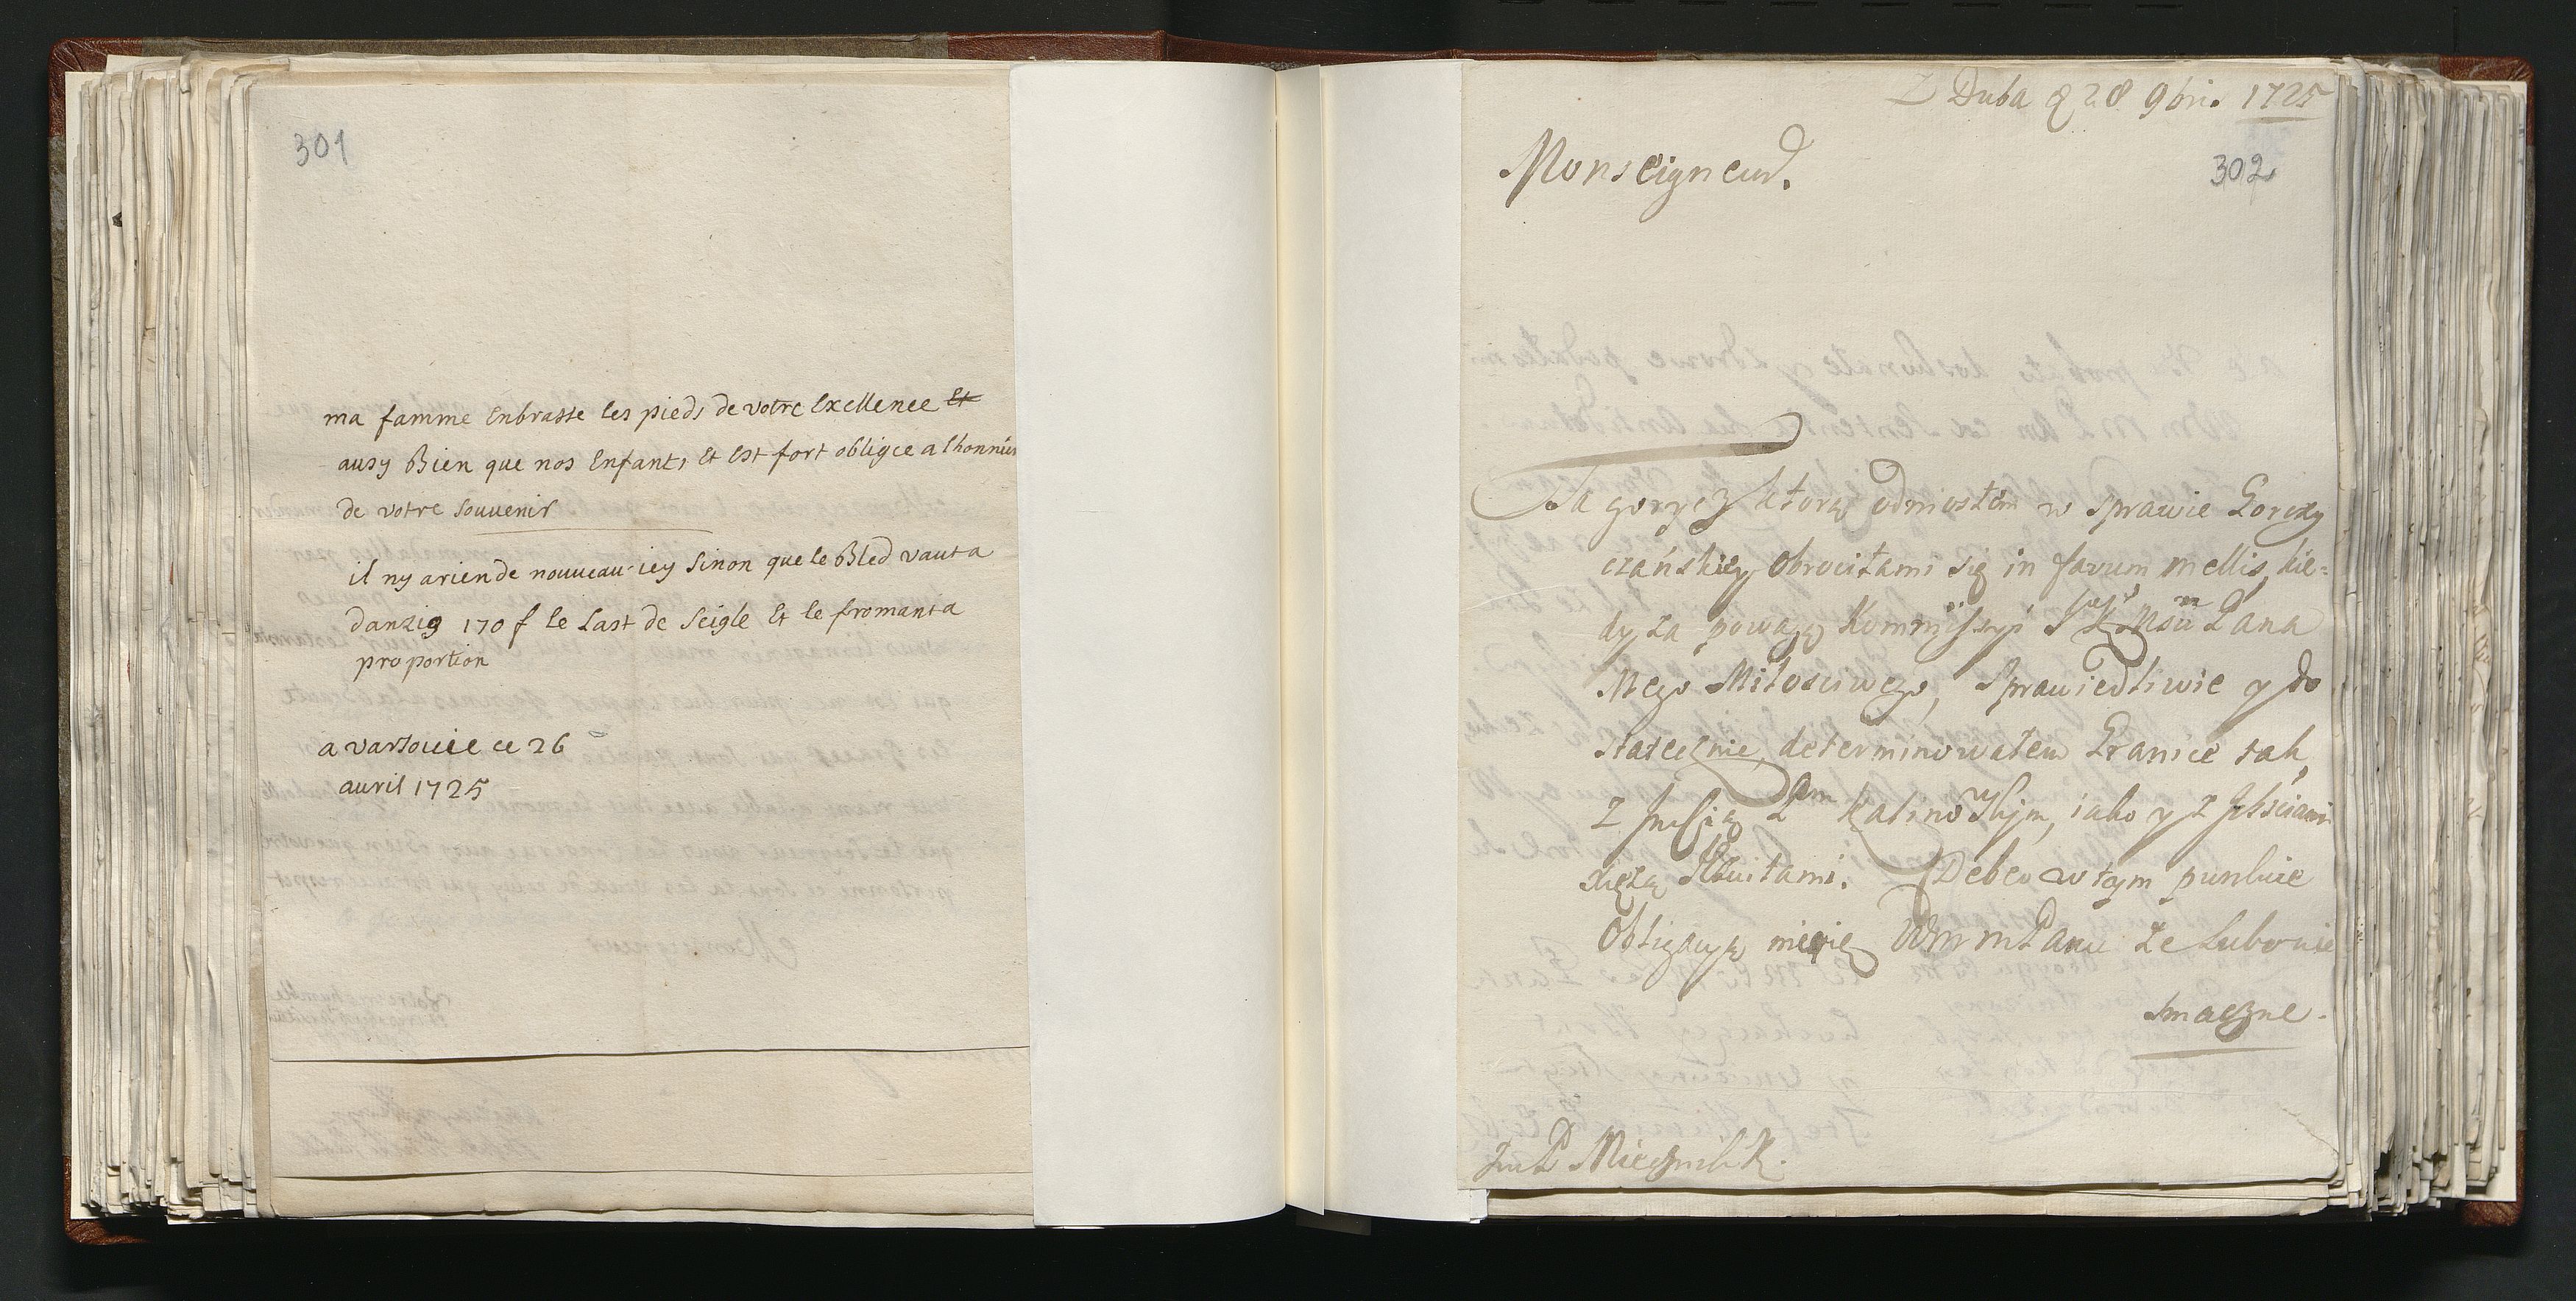 301
ma famme Enbrasse les pieds de votre Excellence Et
ausy Bien que nos Enfants et Est fort obligée a lhonnúr
de votre souvenir
il ny arien de nouveau icy sinon que le Bled vaut a
danzig 170 f le Last de seigle Et le fromant a
proportion
a varsouie ce 26
auril 1725
Z Duba 28 9bris 1725
302
Monseigneur.
Ta gorycz ktorą odniosłem w sprawie Gorczy
czańskiey, obrociłami się in favum mellis, kie=
dy za powagą Kommissyi Pana
Mego Miłosciwego, Sprawiedliwie y do
statecznie, determinowałem Granice tak,
z Kalinowskim, iako y z
xięzą Jezuitami. Debeo w tym punkcie
Obligacyą WmmPanu ze Lubo nie
smaczne.
JmP Miecznik K.